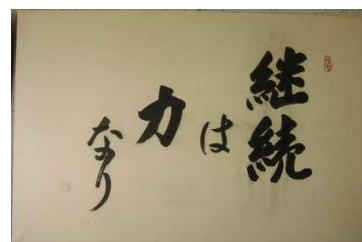 継続
は
力
なり